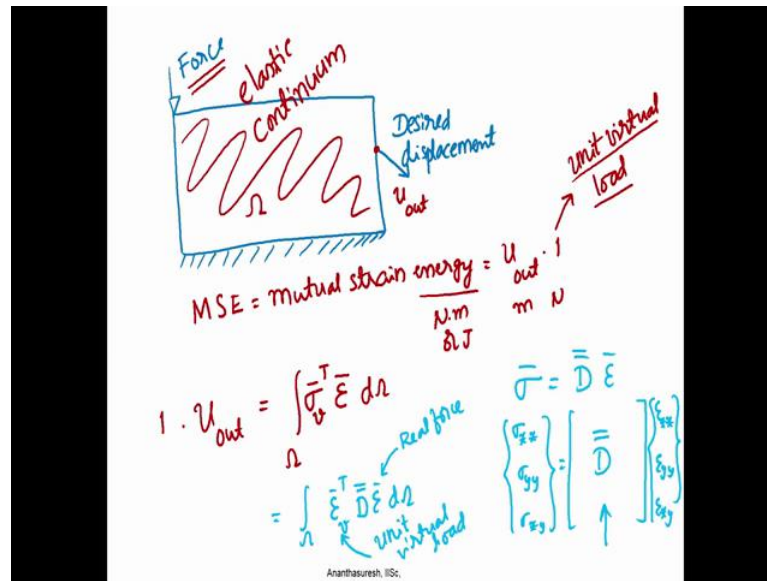 Force
elastic
continuum
Ω
Desired
displacement
u_out
unit virtual
load
MSE = mutual strain energy = u_out · 1
N.m   m   N
or J
1 . u_out = ∫_Ω σ̄_v^T ε̄ dΩ
= ∫_Ω ε̄_v^T D̿ ε̄ dΩ
Real force
unit
virtual
load
σ̄ = D̿ ε̄
{σxx σyy σxy} = [D̿] {εxx εyy εxy}
Ananthasuresh, IISc,